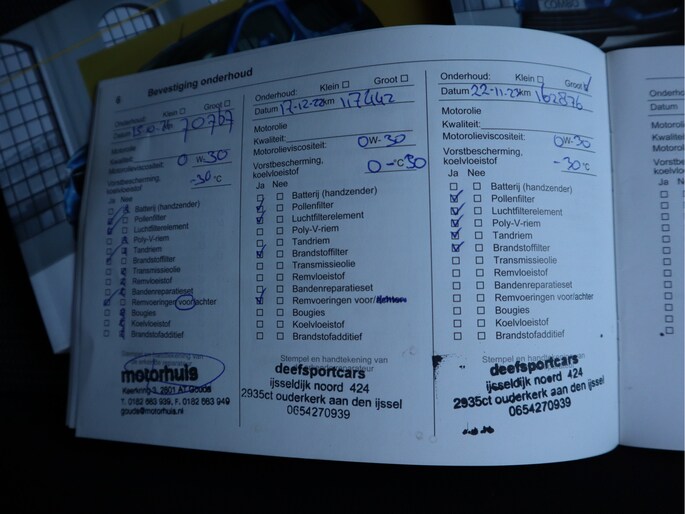 6
Bevestiging onderhoud
Onderhoud: Klein ☐ Groot ☐
Datum km 70767
Motorolie
Kwaliteit:
Motorolieviscositeit: 0W-30
Vorstbescherming,
koelvloeistof -30°C
Ja Nee
Batterij (handzender)
Pollenfilter
Luchtfilterelement
Poly-V-riem
Tandriem
Brandstoffilter
Transmissieolie
Remvloeistof
Bandenreparatieset
Remvoeringen voor/achter
Bougies
Koelvloeistof
Brandstofadditief
Stempel en handtekening van
motorhuis
Keerkring 3, 2801 AT Gouda
T. 0182 563 939, F. 0182 563 949
gouda@motorhuis.nl
Onderhoud: Klein ☐ Groot ☐
Datum 17-12-22 km 117442
Motorolie
Kwaliteit:
Motorolieviscositeit: 0W-30
Vorstbescherming,
koelvloeistof 0-°C30
Ja Nee
Batterij (handzender)
Pollenfilter
Luchtfilterelement
Poly-V-riem
Tandriem
Brandstoffilter
Transmissieolie
Remvloeistof
Bandenreparatieset
Remvoeringen voor/
Bougies
Koelvloeistof
Brandstofadditief
Stempel en handtekening van
deefsportcars
ijsseldijk noord 424
2935ct ouderkerk aan den ijssel
0654270939
Onderhoud: Klein ☐ Groot ☑
Datum 22-11-23 km 162876
Motorolie
Kwaliteit:
Motorolieviscositeit: 0W-30
Vorstbescherming,
koelvloeistof -30°C
Ja Nee
Batterij (handzender)
Pollenfilter
Luchtfilterelement
Poly-V-riem
Tandriem
Brandstoffilter
Transmissieolie
Remvloeistof
Bandenreparatieset
Remvoeringen voor/achter
Bougies
Koelvloeistof
Brandstofadditief
Stempel en handtekening van
deefsportcars
ijsseldijk noord 424
2935ct ouderkerk aan den ijssel
0654270939